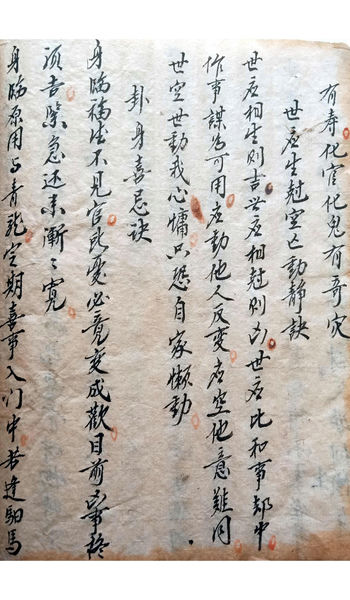 有寿化官化鬼有奇灾
世应生尅空亡動静訣
世应相生則吉世应相尅則凶世应比和事却中
作事謀為可用应動他人反变应空他意難同
世空世動我心慵只恐自家懒動
卦身喜忌訣
身臨福 不見官 憂必竟变成歡目前凶事終
須吉緊急还来漸〻寬
身臨原用与青龍定期喜事入门中若逢馹馬